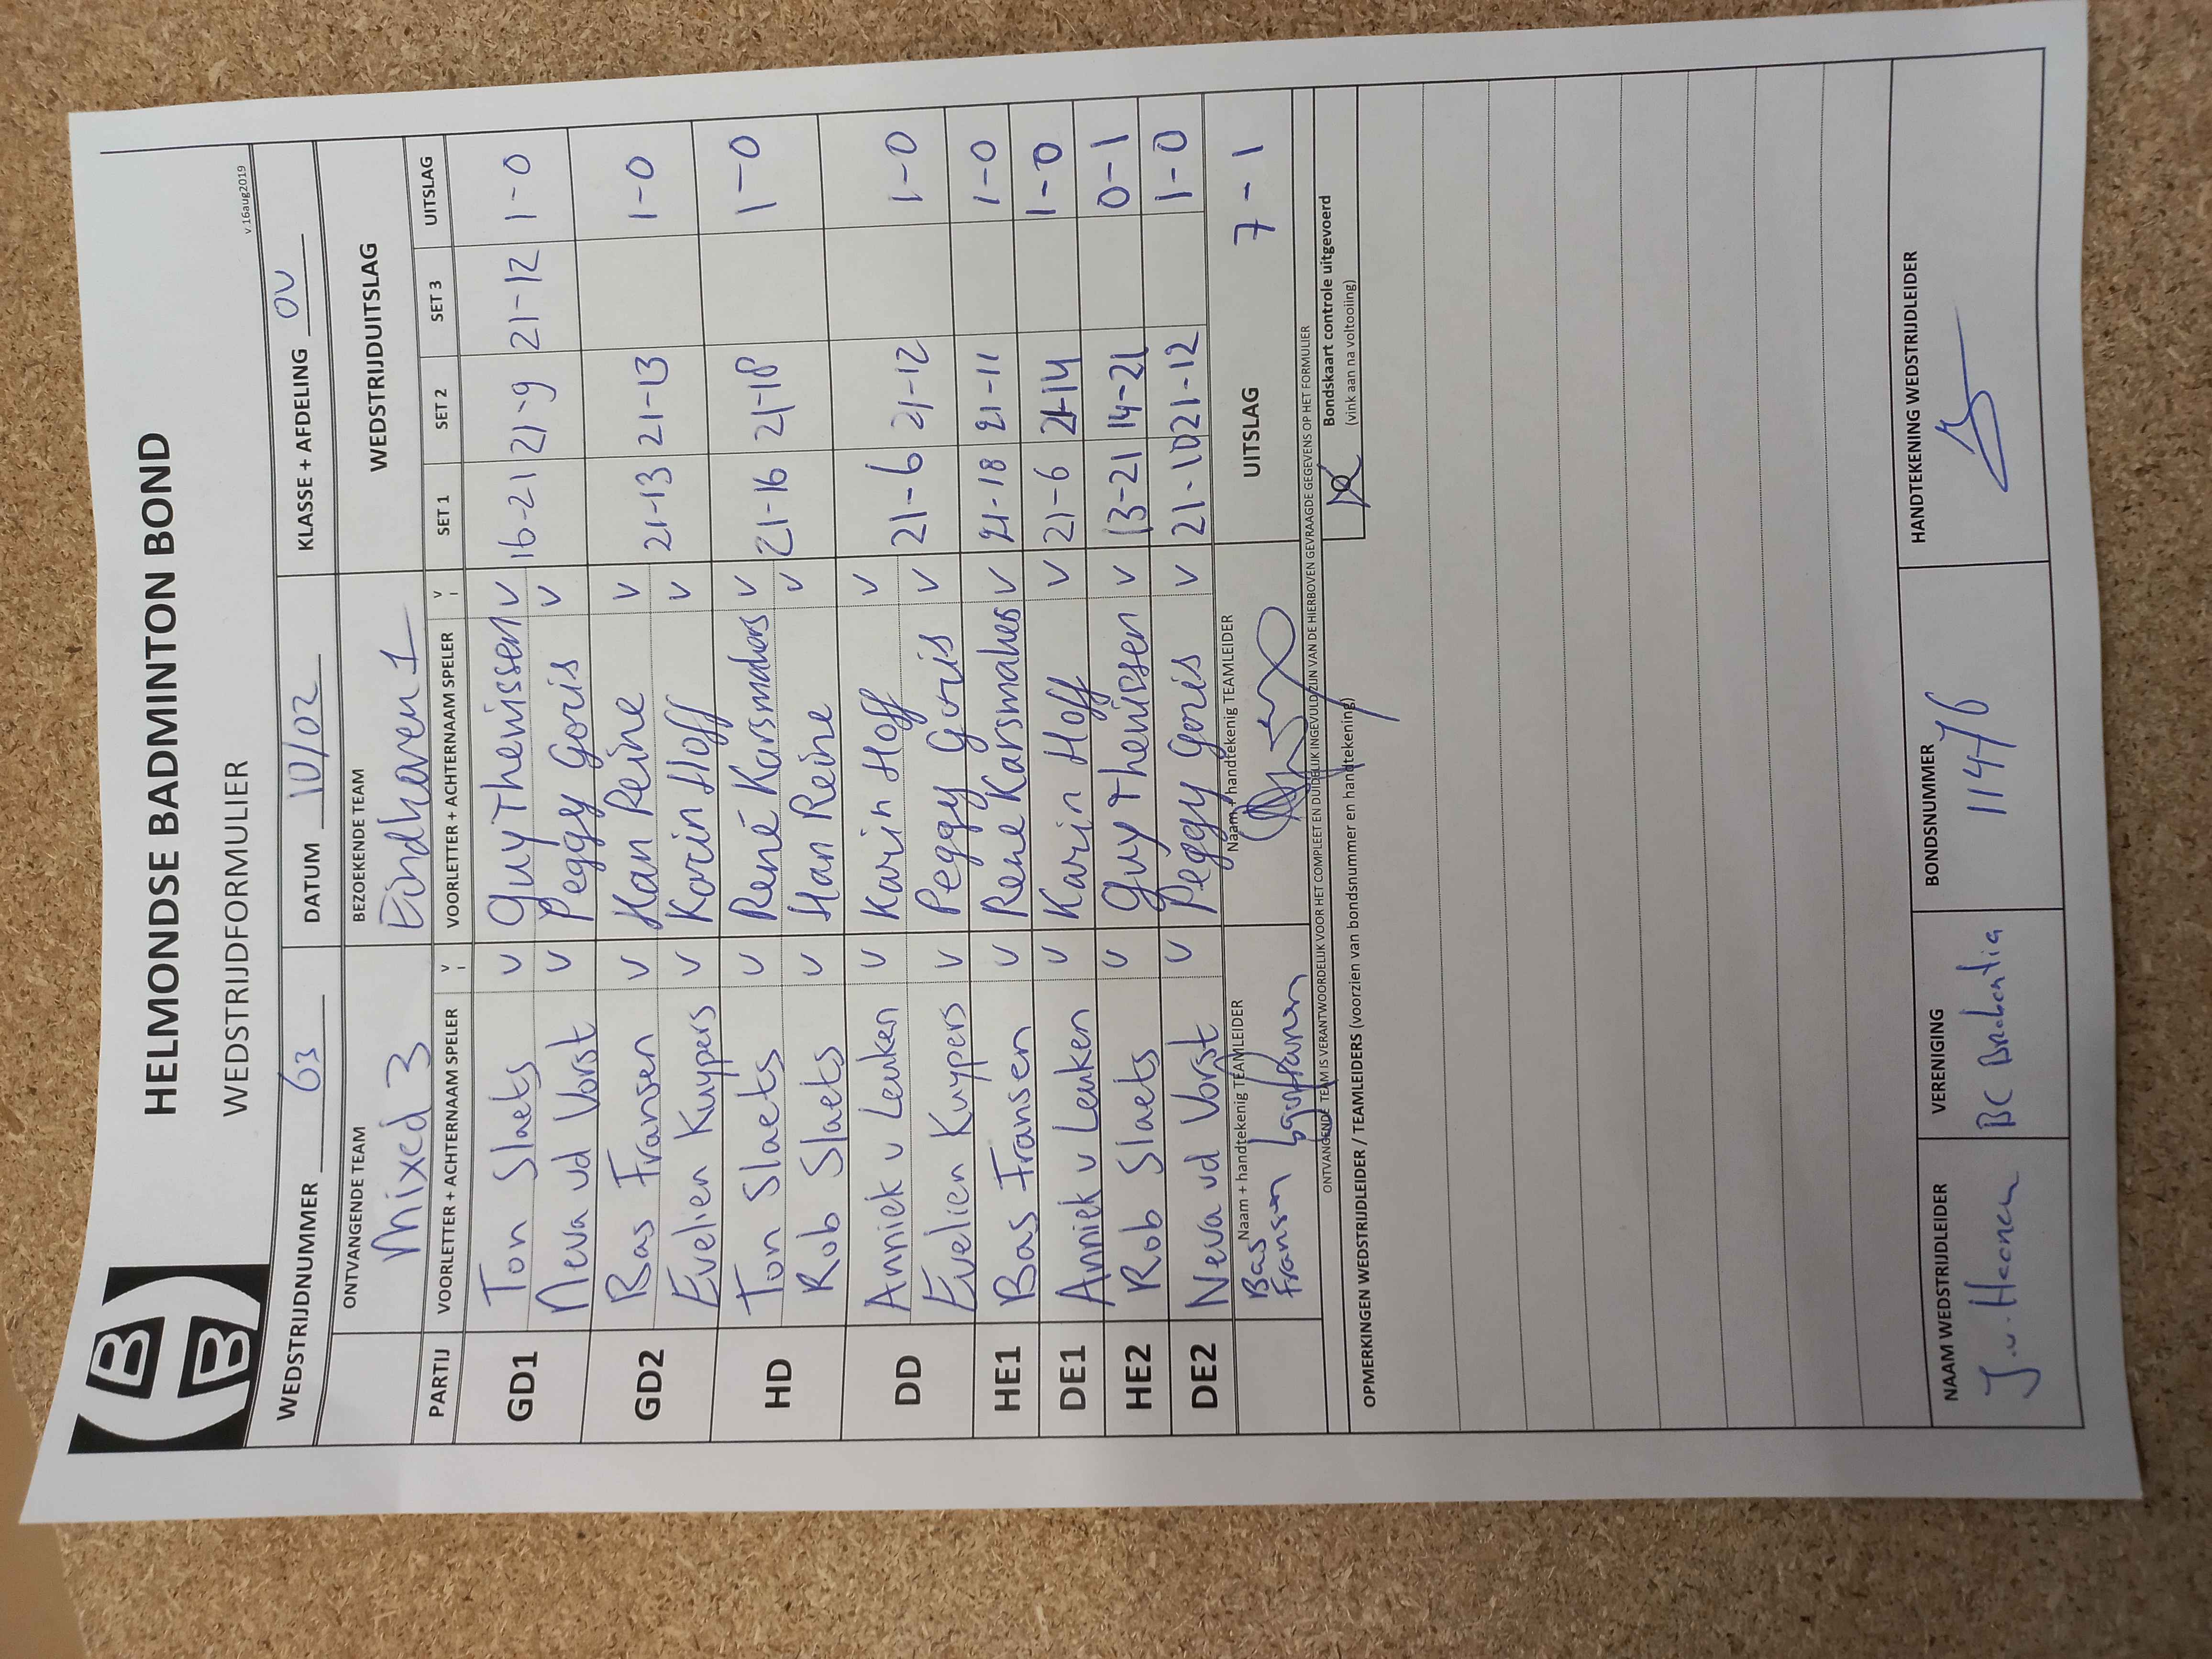 HELMONDSE BADMINTON BOND
WEDSTRIJDFORMULIER
v.16aug2019
WEDSTRIJDNUMMER 63 DATUM 10/02 KLASSE + AFDELING OV
ONTVANGENDE TEAM BEZOEKENDE TEAM WEDSTRIJDUITSLAG
Mixed 3 Eindhoven 1
PARTIJ VOORLETTER + ACHTERNAAM SPELER V VOORLETTER + ACHTERNAAM SPELER V SET 1 SET 2 SET 3 UITSLAG
GD1 Ton Slaets v Guy Thenissen v 16-21 21-9 21-12 1-0
Neva vd Vorst v Peggy Goris v
GD2 Bas Fransen v Han Reine v 21-13 21-13 1-0
Evelien Kuypers v Karin Hoff v
HD Ton Slaets v René Karsmakers v 21-16 21-18 1-0
Rob Slaets v Han Reine v
DD Anniek v Leuken v Karin Hoff v 21-6 21-12 1-0
Evelien Kuypers v Peggy Goris v
HE1 Bas Fransen v René Karsmakers v 21-18 21-11 1-0
DE1 Anniek v Leuken v Karin Hoff v 21-6 21-14 1-0
HE2 Rob Slaets v Guy Thenissen v 13-21 14-21 0-1
DE2 Neva vd Vorst v Peggy Goris v 21-10 21-12 1-0
Naam + handtekenig TEAMLEIDER Naam + handtekenig TEAMLEIDER UITSLAG 7-1
Bas
Fransen
ONTVANGENDE TEAM IS VERANTWOORDELIJK VOOR HET COMPLEET EN DUIDELIJK INGEVULD ZIJN VAN DE HIERBOVEN GEVRAAGDE GEGEVENS OP HET FORMULIER
Bondskaart controle uitgevoerd
(vink aan na voltooiing)
OPMERKINGEN WEDSTRIJDLEIDER / TEAMLEIDERS (voorzien van bondsnummer en handtekening)
NAAM WEDSTRIJDLEIDER VERENIGING BONDSNUMMER HANDTEKENING WEDSTRIJDLEIDER
J.v. Heenen BC Brabantia 11476